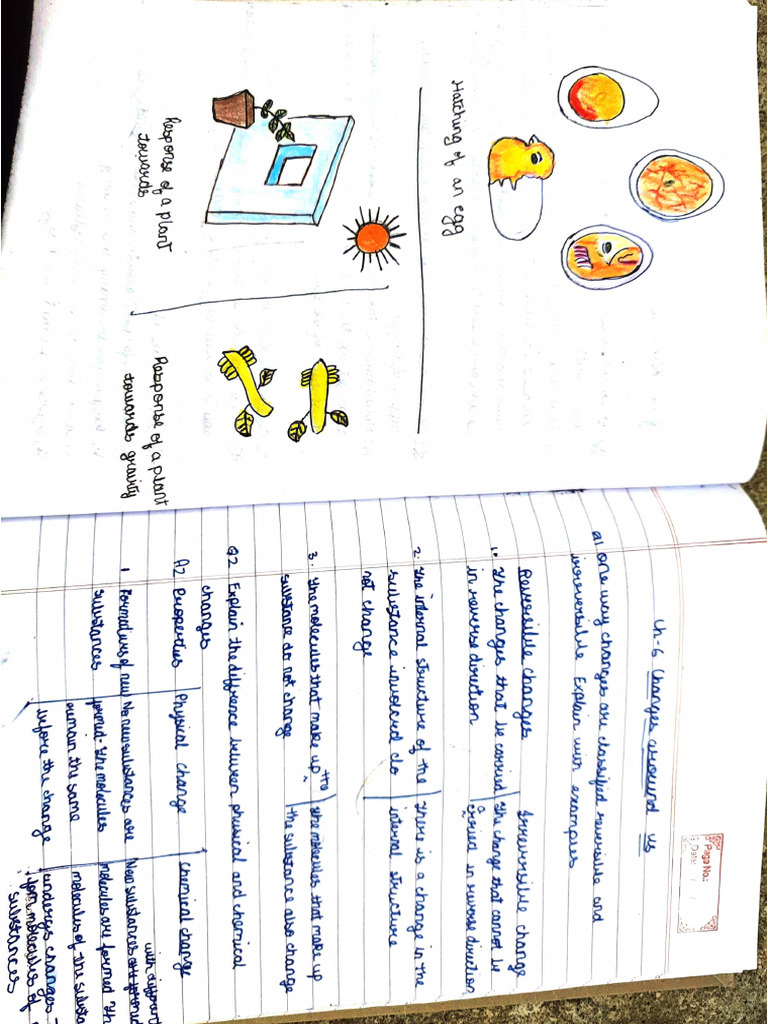 Hatching of an egg
Response of a plant
towards
Response of a plant
towards gravity
Page No.:
Date: / /
Ch-6 Changes around us
Q1. One way changes are classified reversible and
irreversible Explain with examples
Reversible changes Irreversible change
1. The changes that be carried The change that cannot be
in reverse direction carried in reverse direction
2. The internal structure of the There is a change in the
substance involved do internal structure
not change
3. The molecules that make up the The molecules that make up
substance do not change the substance also change
Q2 Explain the diffrence between physical and chemical
changes
A2 Properties Physical Change Chemical change
1 Formations of new No new substances are New substances are formed with different
substances formed. The molecules molecules are formed Th
remain the same molecules of the substa
before the change undergo changes
form molecules of
substances